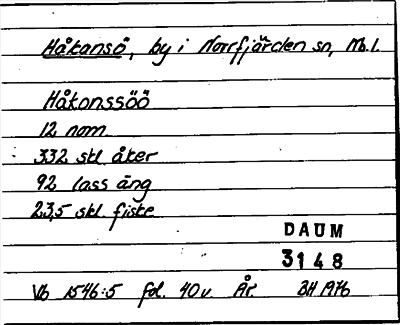 Håkansö, by i Norrfjärden sn, Nb. l.
Håkonssöö
12 nom
332 skl åker
92 lass äng
23,5 skl. fiske
DAUM
3148
Vb 1546:5 fol. 40v. År. BH 1976